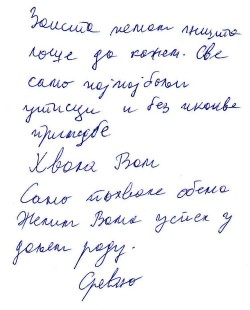 Заиста немам ништа
лоше да кажем. Све
само најнајбољи
утисци и без икакве
примедбе
Хвала Вам
Само похвале
Желим Вама успех у
даљем раду.
Срећно